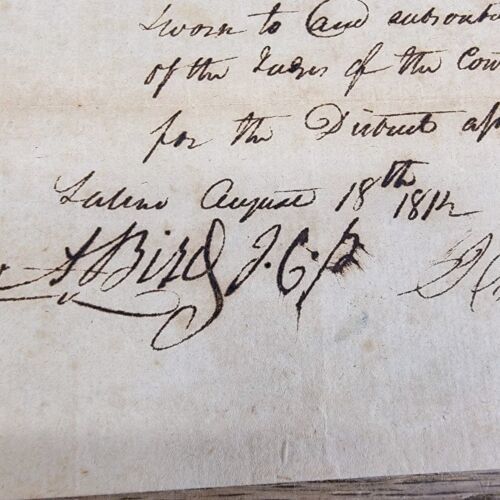 sworn to and subscri
of the Judges of the Cou
for the District af
Salino August 18th 1812
A Bird J.C.P.